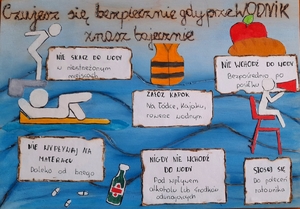 Czujesz się bezpiecznie gdy przeWODNIK
znasz bajecznie
NIE SKACZ DO WODY
w niestrzeżonym
miejscach
ZAŁÓŻ KAPOK
Na łódce, Kajaku,
rowerze wodnym
NIE WCHODŹ DO WODY
Bezpośrednio po
posiłku
NIE WYPŁYWAJ NA
MATERACU
Daleko od brzegu
NIGDY NIE WCHODŹ
DO WODY
Pod wpływem
alkoholu lub środków
odurzających
STOSUJ SIĘ
Do poleceń
ratownika